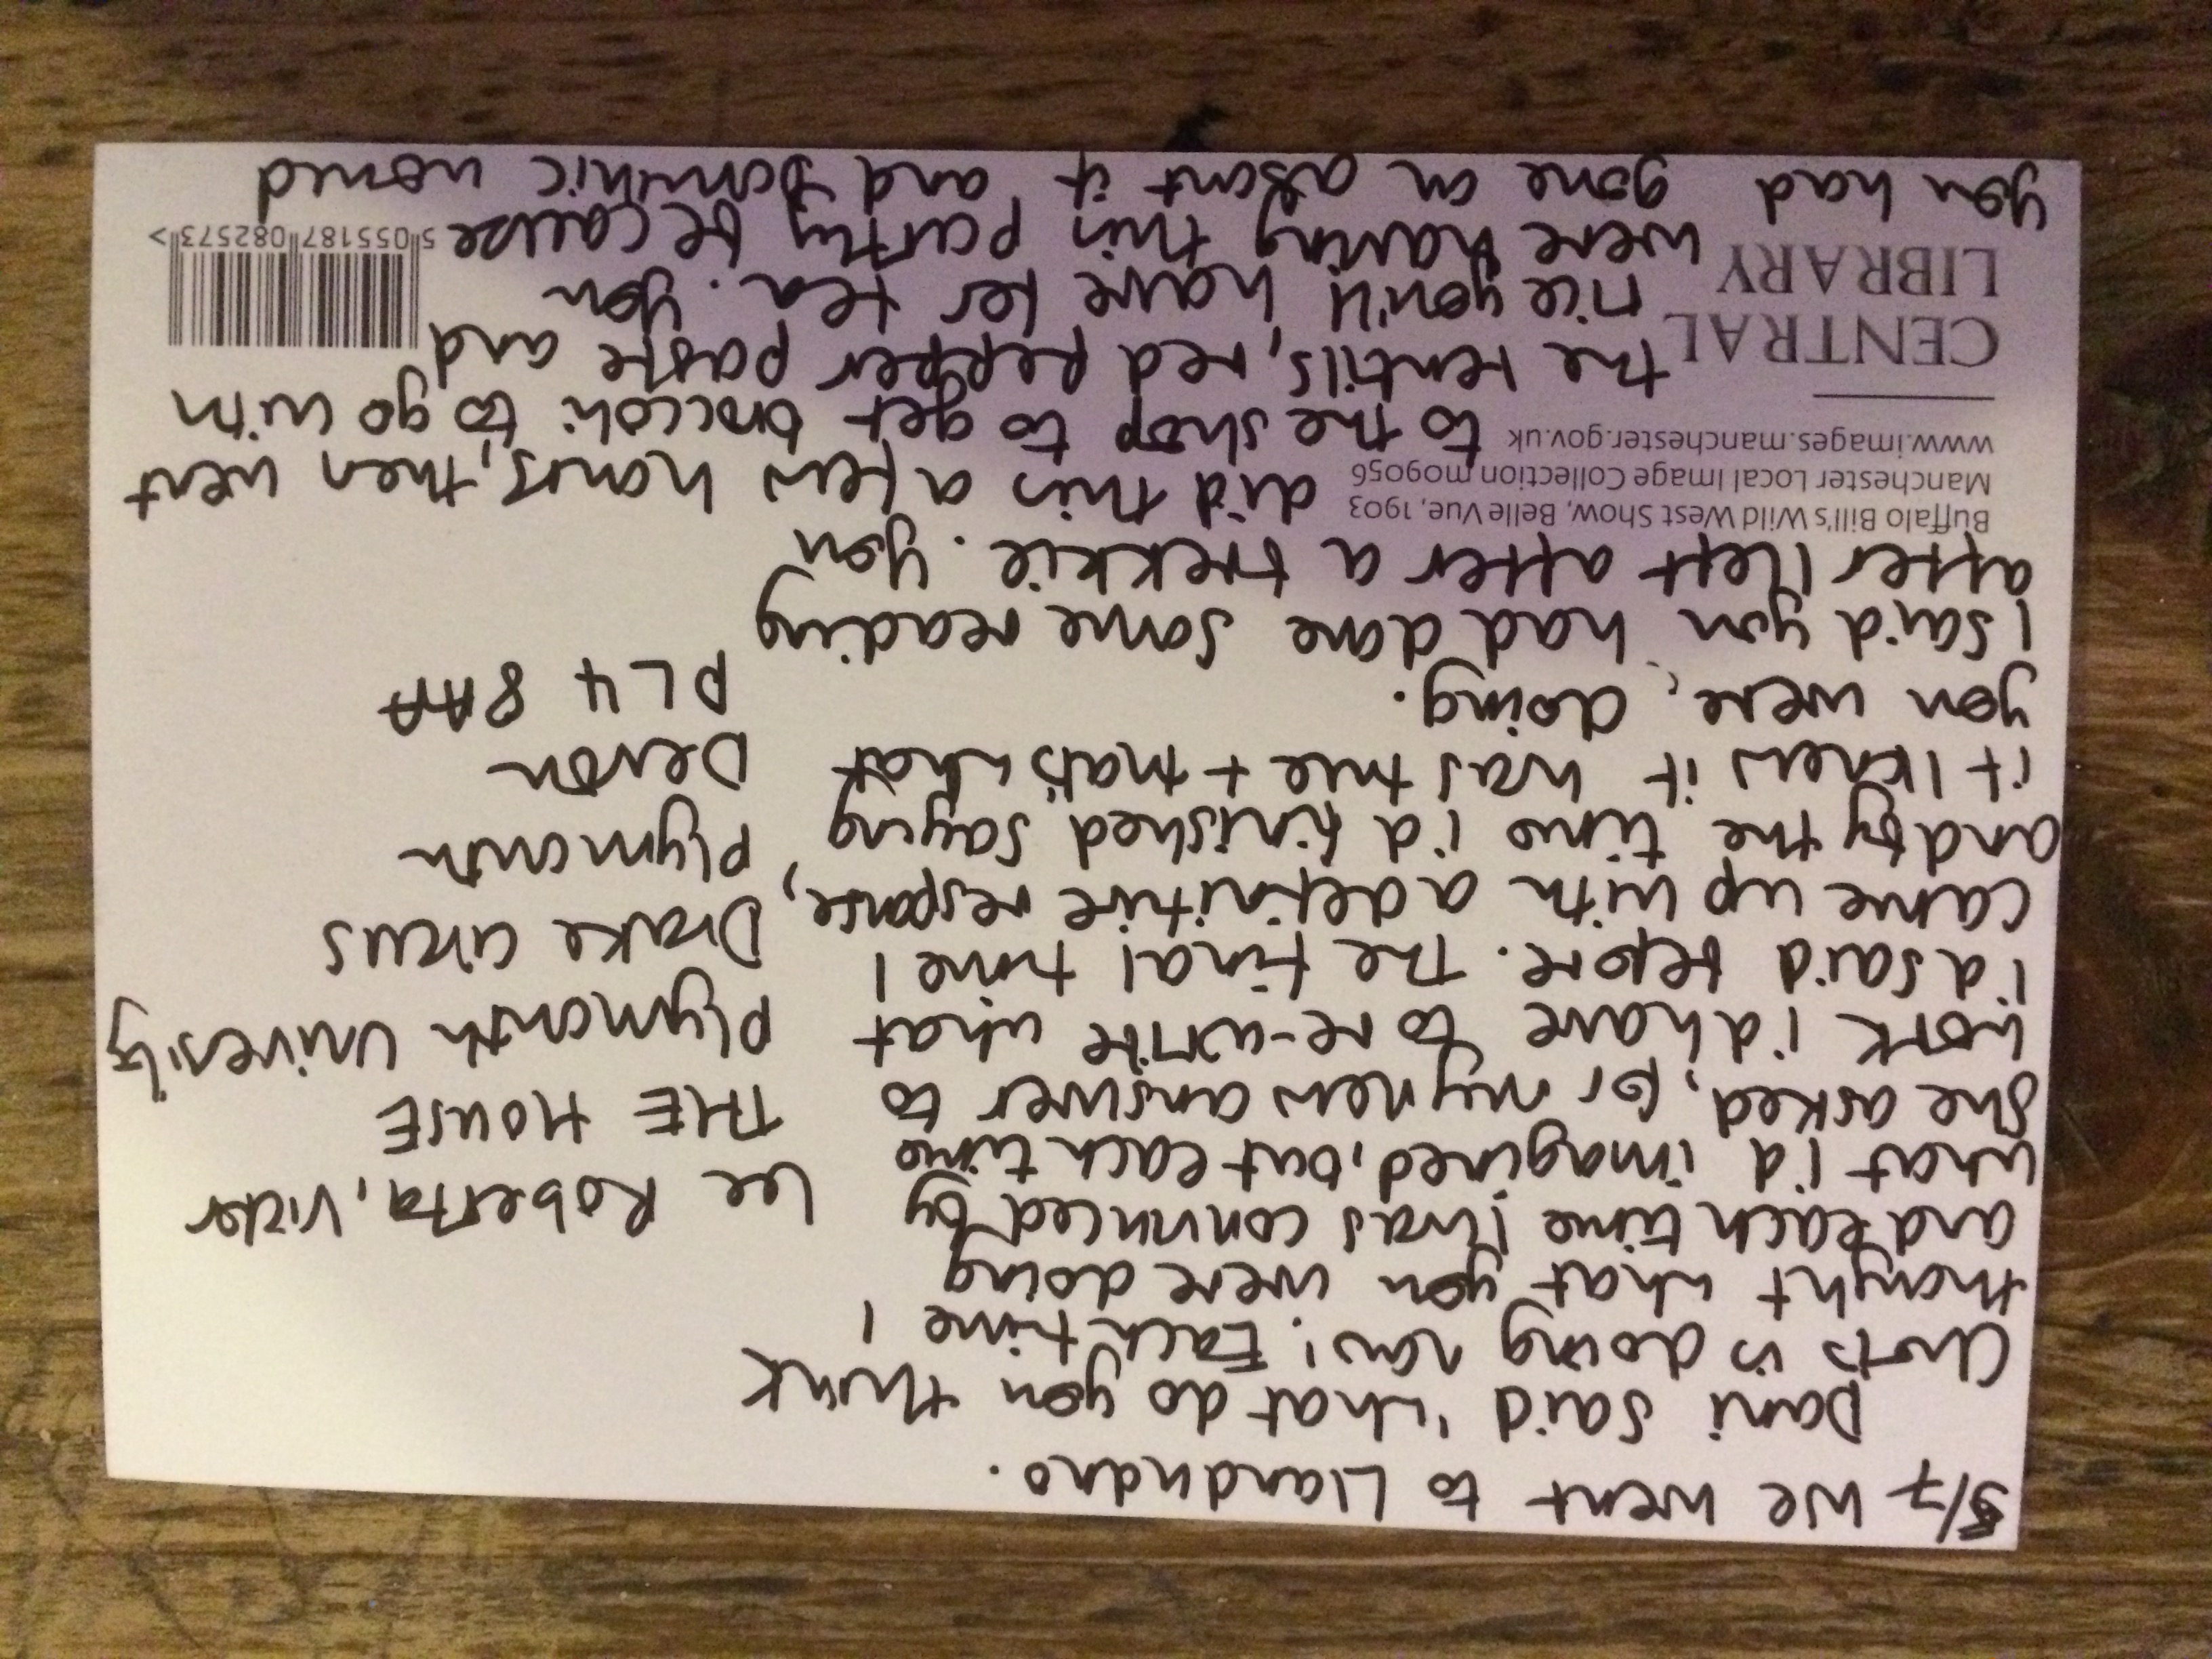 5/7 We went to Llandudno.
Dani said 'what do you think
is doing now'. Each time I
thought what you were doing
and each time I was convinced by
what I'd imagined, but each time
she asked, for my new answer to
work I'd have to re-write what
I'd said before. The final time I
came up with a definitive response,
and by the time I'd finished saying
it I knew it was true + that's what
you were doing.
I said you had done some reading
after I left after a trekkie. You
did this a few hours, then went
to the shop to get broccoli to go with
the lentils, red pepper paste and
rice you'll have for tea. You
were having this partly because
you had gone on about it and Dominic wanted
Lee Roberta, Victor
THE HOUSE
Plymouth University
Drake Circus
Plymouth
Devon
PL4 8AA
Buffalo Bill's Wild West Show, Belle Vue, 1903
Manchester Local Image Collection m09056
www.images.manchester.gov.uk
CENTRAL
LIBRARY
5 055187 082573 >